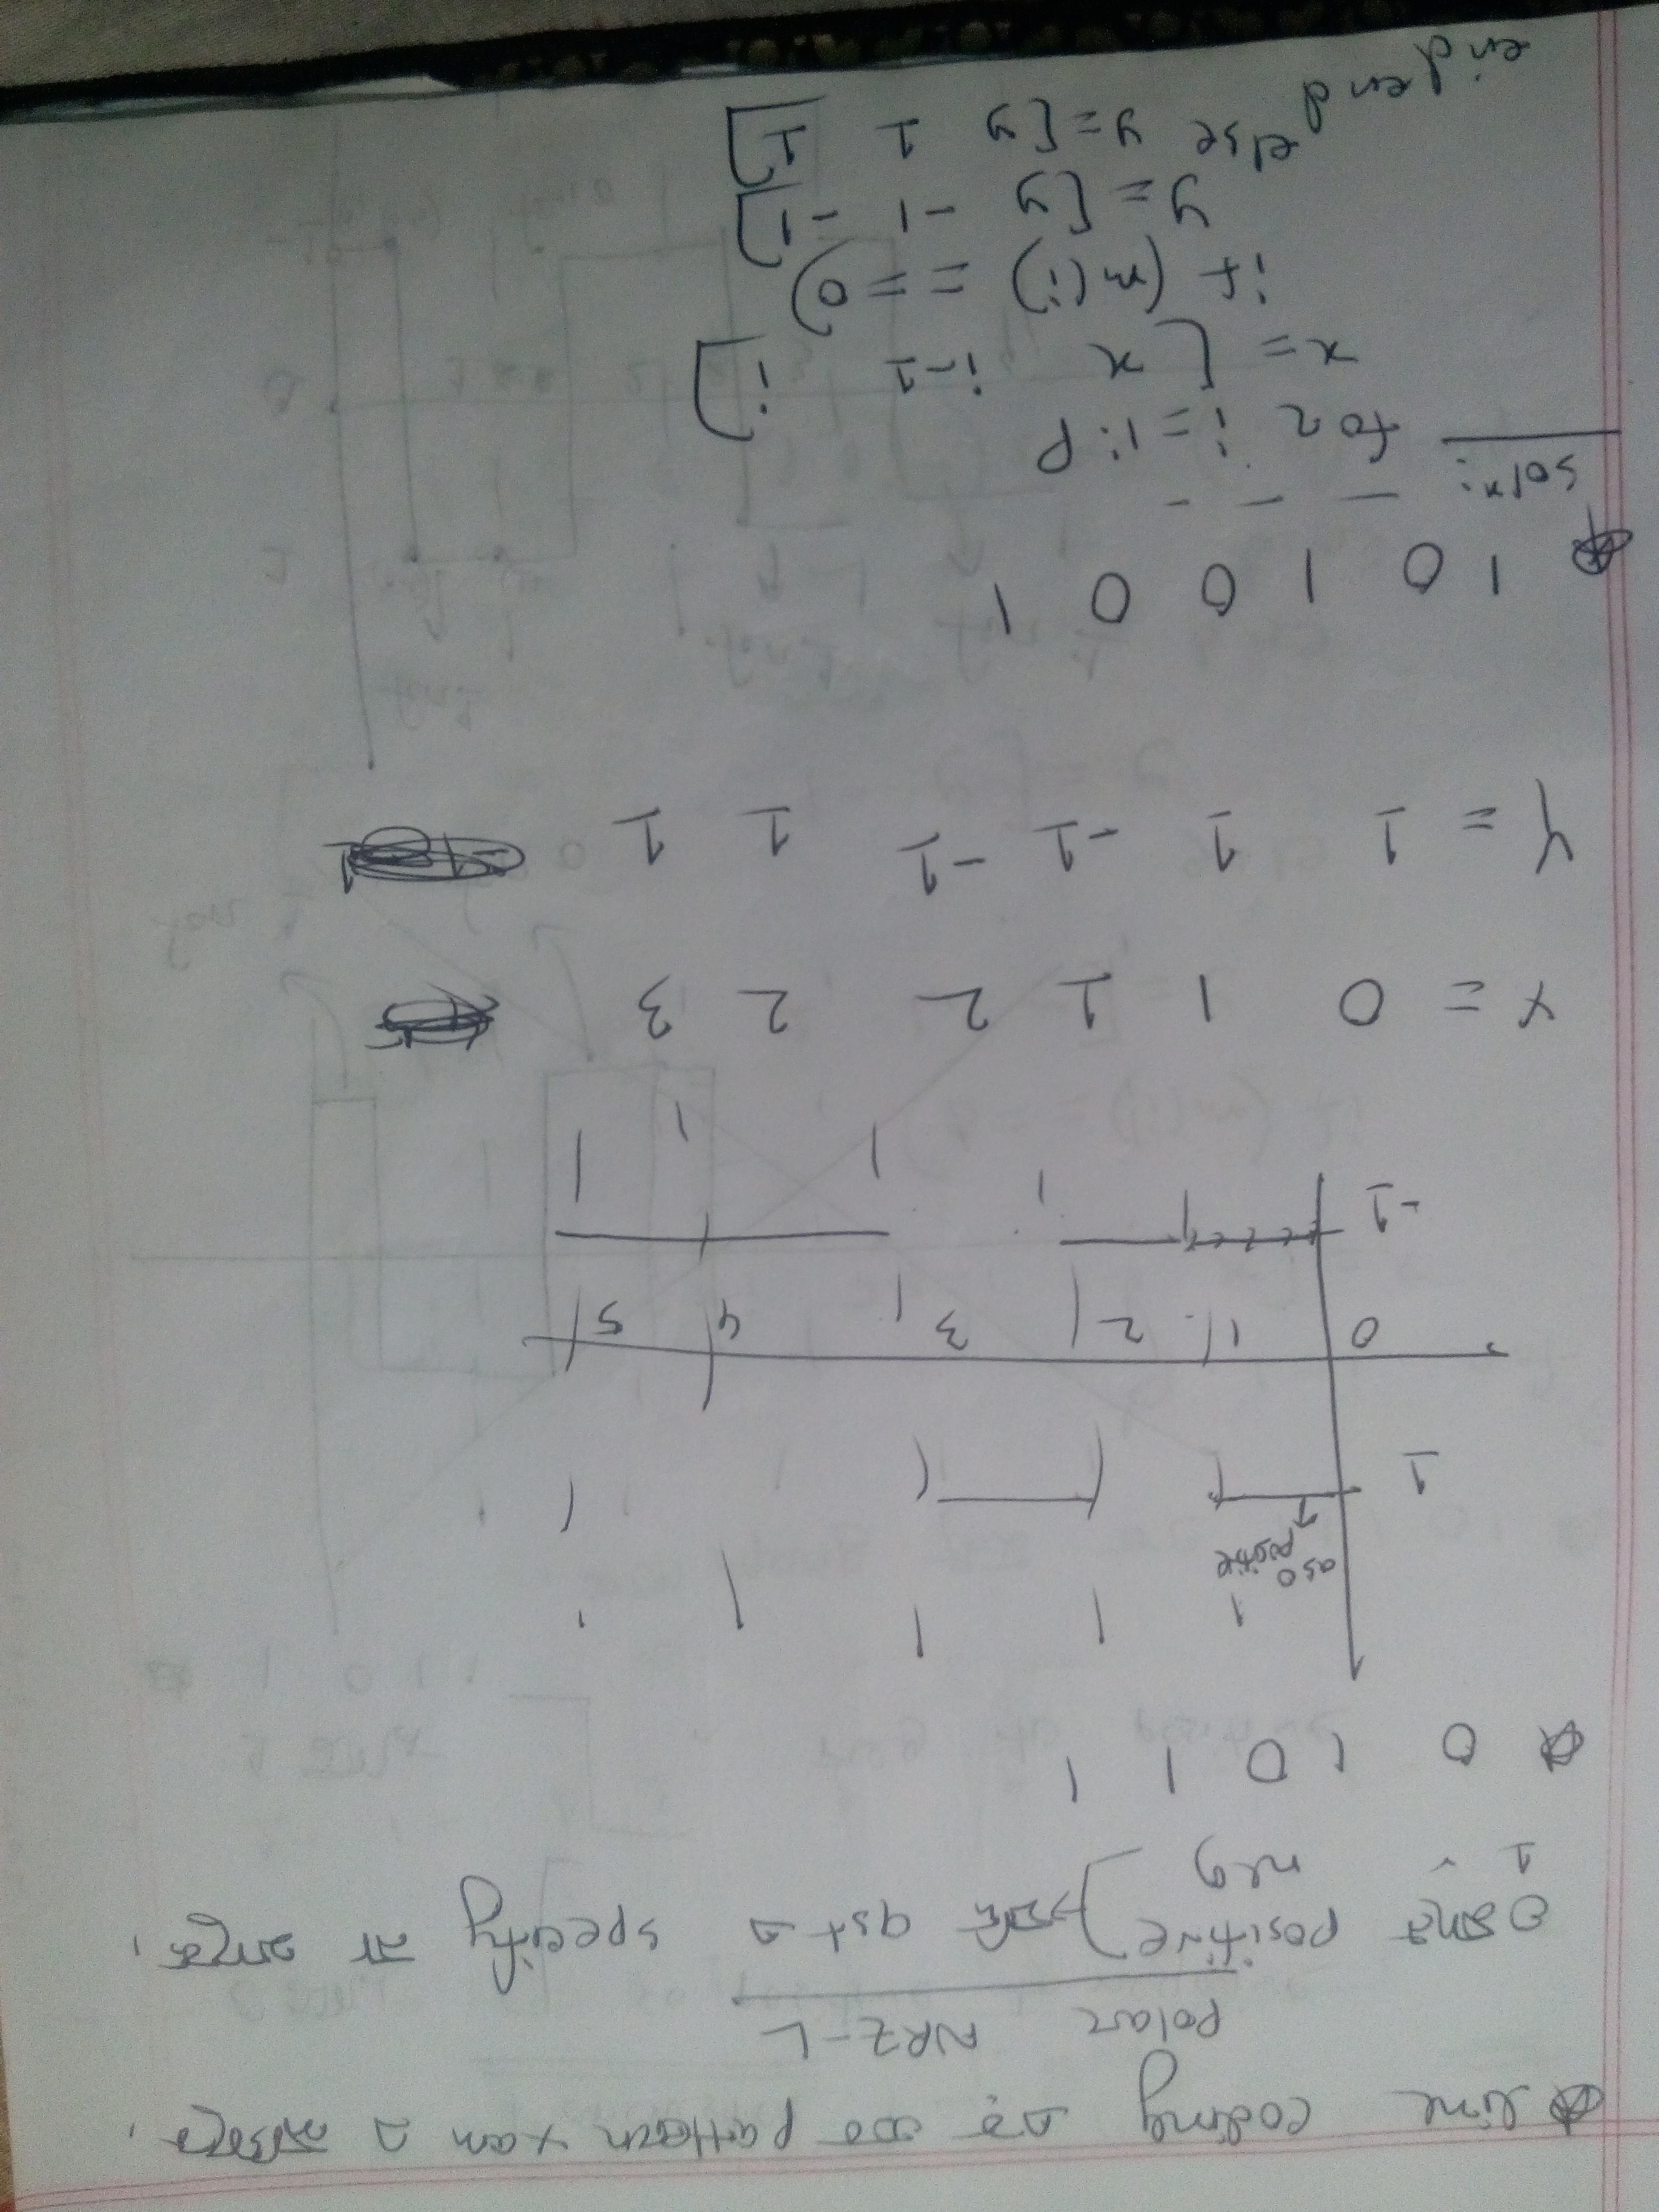 line coding এর সব pattern xam এ আসবে।
Polar NRZ-L
0 মানে positive } → যদি qst এ specify না থাকে।
1 " neg
0 1 0 1 1
as 0 positive
↑
1
0 1 2 3 4 5
-1
X = 0 1 1 2 2 3
Y = 1 1 -1 -1 1 1
1 0 1 0 0 1
Solⁿ: — — —
for i=1:P
x = [ x i-1 i]
if (m(i) == 0)
y = [y -1 -1]
else y = [y 1 1]
end
end